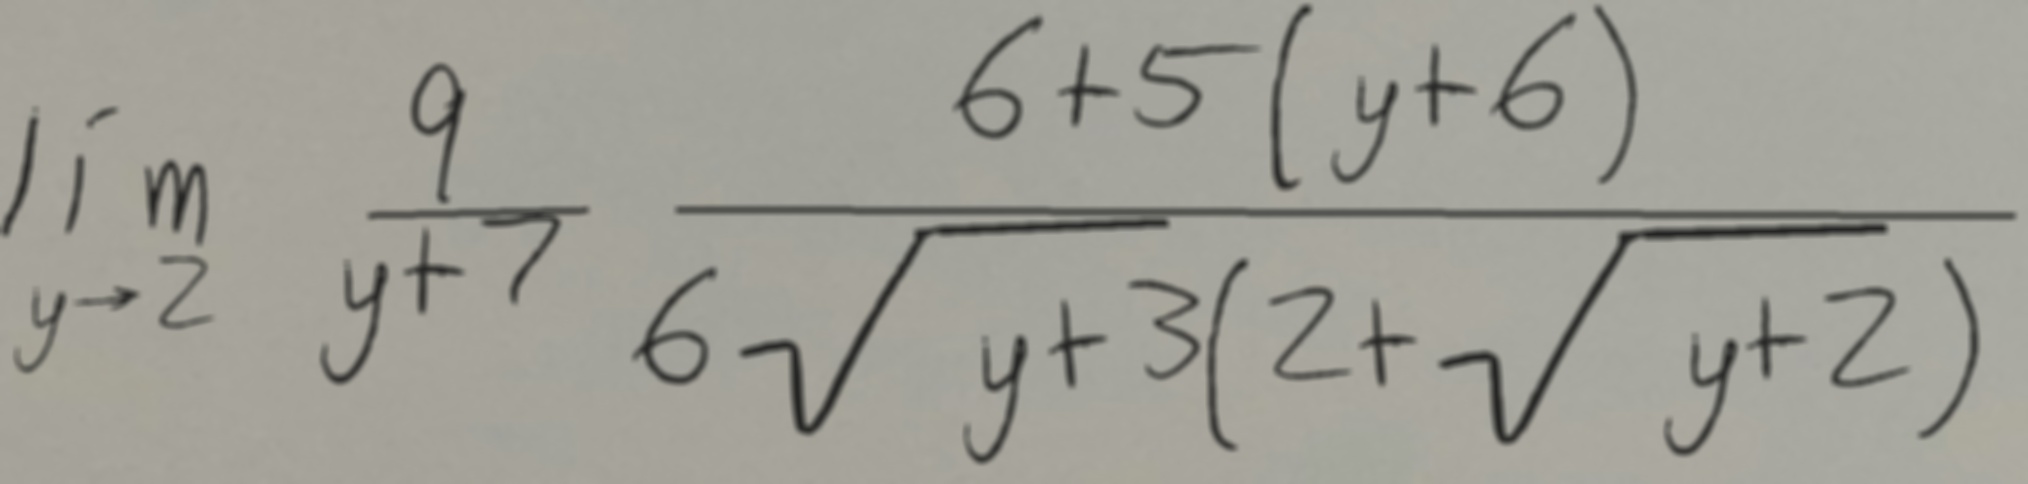 \lim_{y \to 2} \frac{9}{y+7} \frac{6+5(y+6)}{6\sqrt{y+3}(2+\sqrt{y+2})}